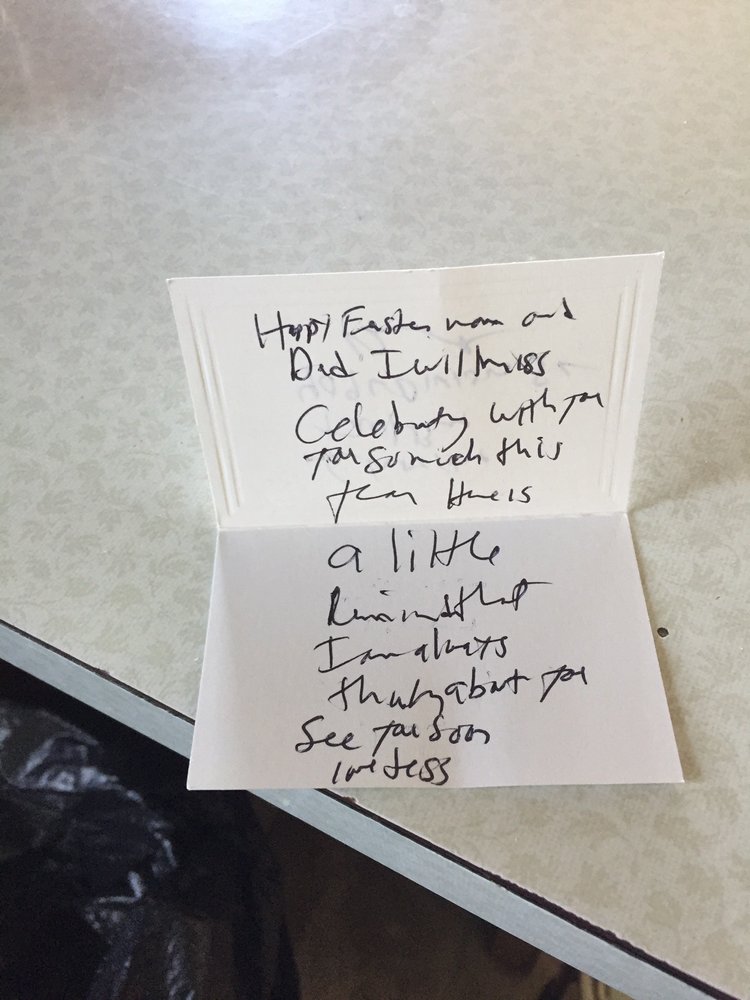 Happy Easter mom and
Dad I will miss
Celebrating with you
you so much this
year Here is
a little
Remind that
I am always
thinking about you
See you soon
love Jess